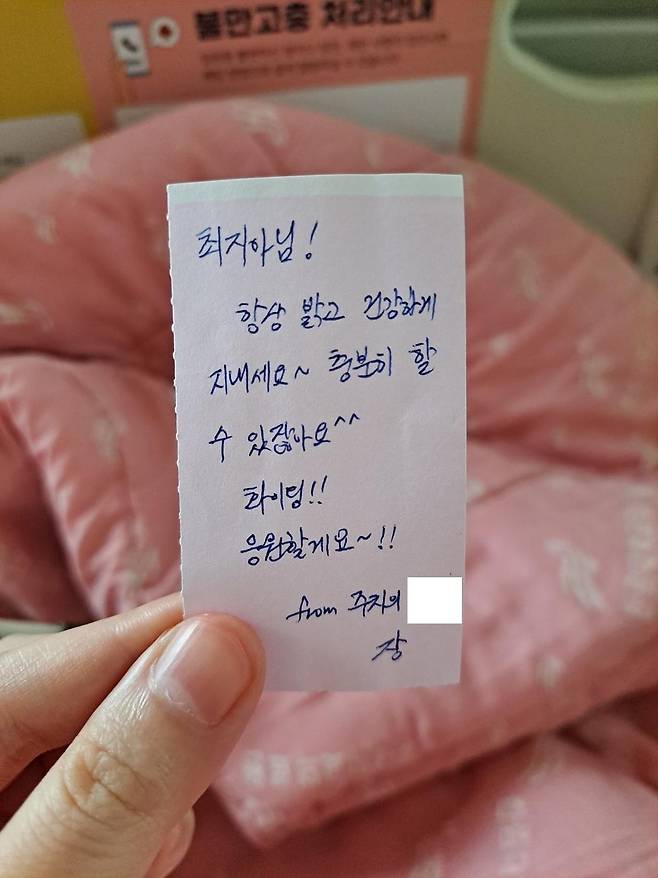 불만고충 처리안내
최지아님!
항상 밝고 건강하게
지내세요~ 충분히 할
수 있잖아요^^
화이팅!!
응원할게요~!!
from 주치의
장